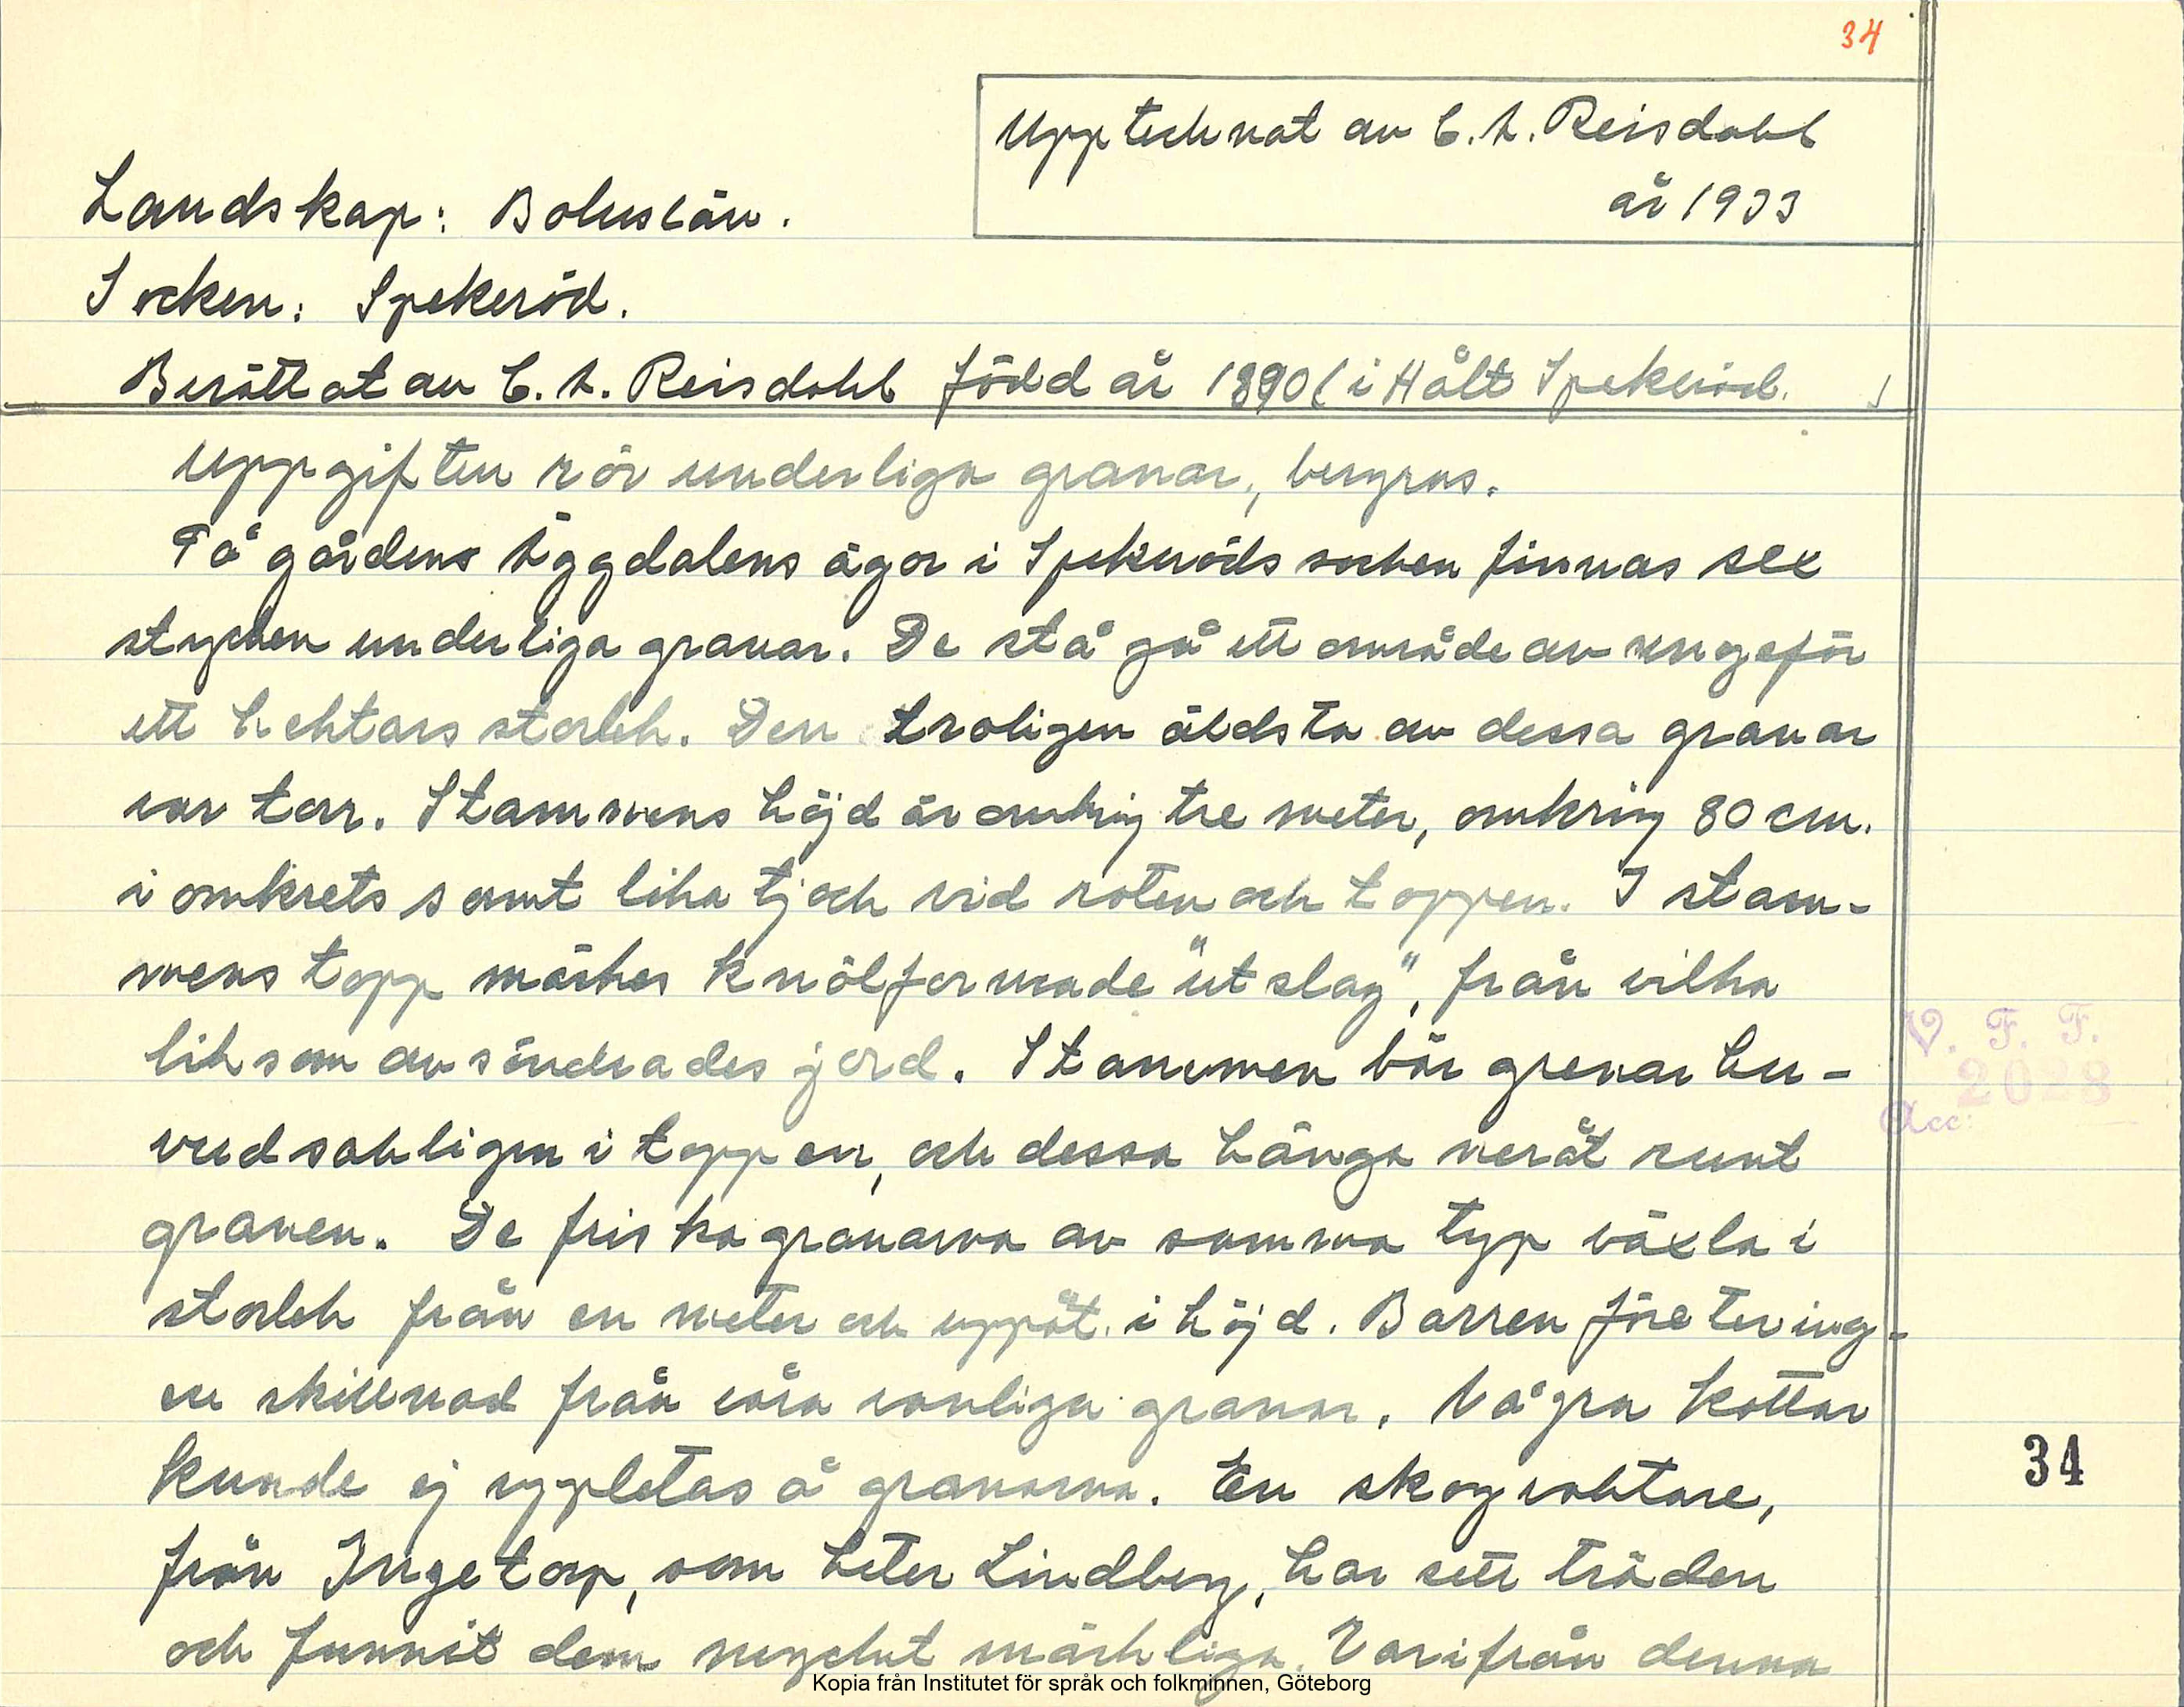 34
Upptecknat av C. A. Reisdahl
år 1933
Landskap: Bohuslän.
Socken: Spekeröd.
Berättat av C. A. Reisdahl född år 1890 (i Hålt Spekeröd.
Uppgiften rör underliga granar, bergras.
På gårdens Äggdalens ägor i Spekeröds socken finnas sex
stycken underliga granar. De stå på ett område av ungefär
ett hektars storlek. Den troligen äldsta av dessa granar
var torr. Stammens höjd är omkring tre meter, omkring 80 cm.
i omkrets samt lika tjock vid roten och toppen. I stam-
mens topp märkes knölformade "utslag", från vilka
liksom avsöndrades jord. Stammen bär grenar hu-
vudsakligen i toppen, och dessa hänga neråt runt
granen. De friska granarna av samma typ växla i
storlek från en meter och uppåt i höjd. Barren förete ing-
en skillnad från våra vanliga granar. Några kottar
kunde ej uppletas å granarna. En skogvaktare,
från Ingetorp, som heter Lindberg, har sett träden
och funnit dem mycket märkliga. Varifrån denna
V. F. F.
2028
Acc:
34
Kopia från Institutet för språk och folkminnen, Göteborg